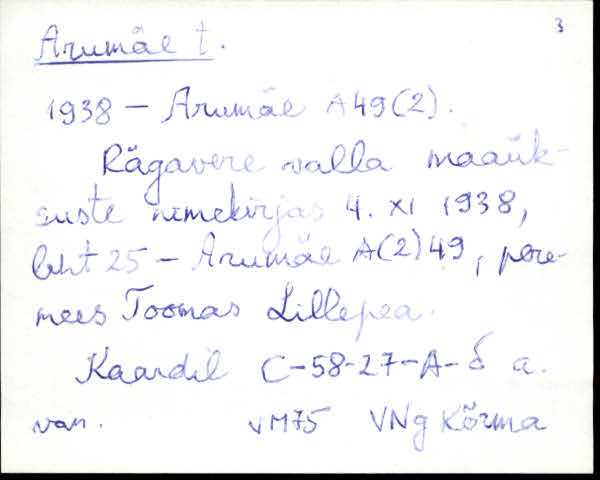 3
Arumäe t.
1938 – Arumäe A49(2).
Rägavere valla maaük-
suste nimekirjas 4. XI 1938,
leht 25 – Arumäe A(2)49, pere-
mees Toomas Lillepea.
Kaardil C-58-27-A-б a.
van. VM75 VNg Kõrma